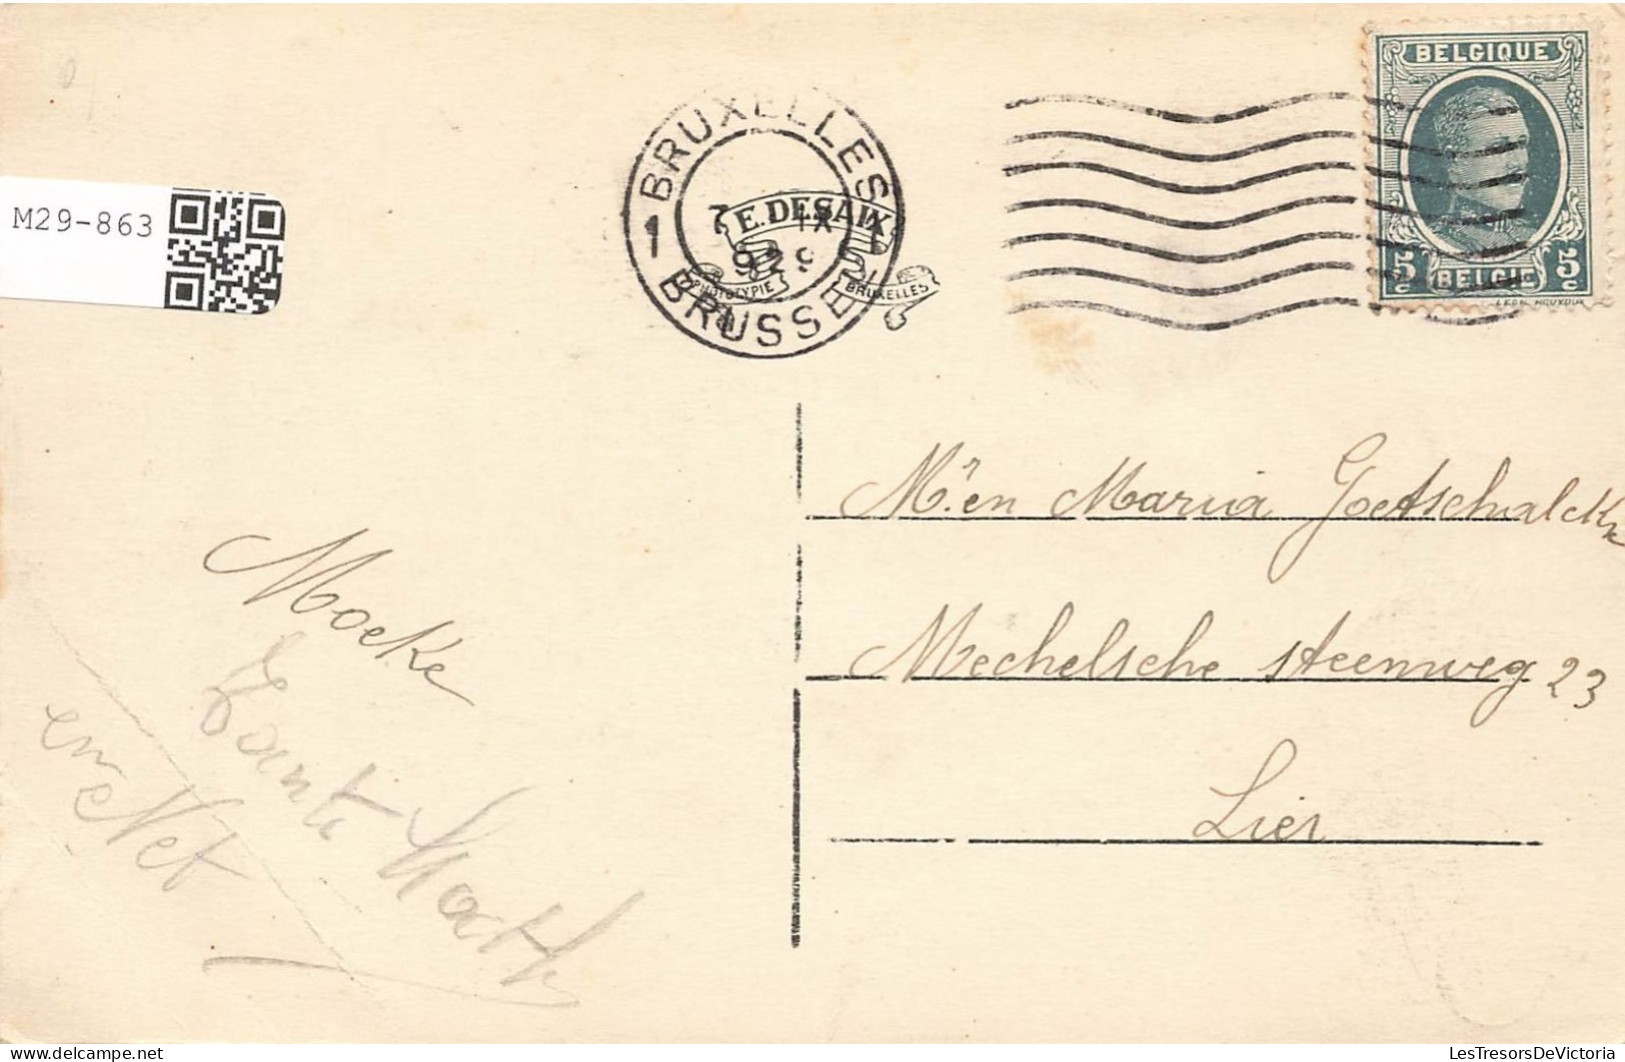 BELGIQUE
5c BELGIE 5c
BRUXELLES
1 7 IX 1
929
BRUSSEL
E. DESAIX
PHOTOTYPIE BRUXELLES
M29-863
Mr en Maria Goetschalckx
Mechelsche steenweg 23
Lier
Moeke
Tante Math
en Net
delcampe.net
LesTresorsDeVictoria